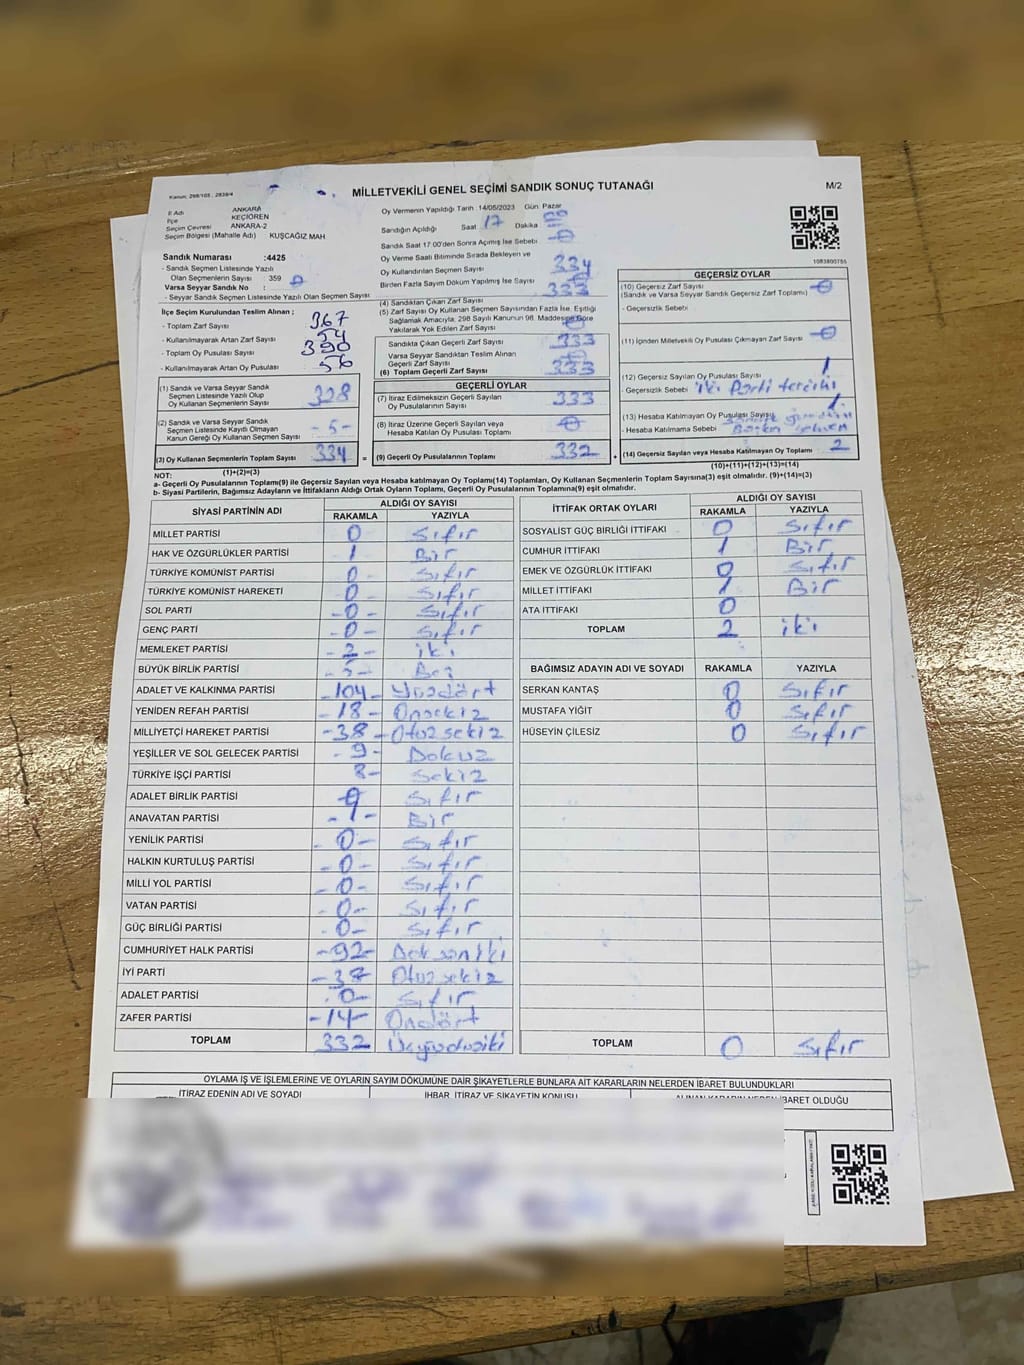 Kanun: 298/105 , 2839/4
MİLLETVEKİLİ GENEL SEÇİMİ SANDIK SONUÇ TUTANAĞI
M/2
İl Adı ANKARA
İlçe KEÇİÖREN
Seçim Çevresi ANKARA-2
Seçim Bölgesi (Mahalle Adı) KUŞCAĞIZ MAH
Sandık Numarası :4425
- Sandık Seçmen Listesinde Yazılı
Olan Seçmenlerin Sayısı 359
Varsa Seyyar Sandık No :
- Seyyar Sandık Seçmen Listesinde Yazılı Olan Seçmen Sayısı
İlçe Seçim Kurulundan Teslim Alınan ;
- Toplam Zarf Sayısı 367
- Kullanılmayarak Artan Zarf Sayısı
- Toplam Oy Pusulası Sayısı 390
- Kullanılmayarak Artan Oy Pusulası 56
(1) Sandık ve Varsa Seyyar Sandık
Seçmen Listesinde Yazılı Olup
Oy Kullanan Seçmenlerin Sayısı 328
(2) Sandık ve Varsa Seyyar Sandık
Seçmen Listesinde Kayıtlı Olmayan
Kanun Gereği Oy Kullanan Seçmen Sayısı - 5 -
(3) Oy Kullanan Seçmenlerin Toplam Sayısı 334 =
(1)+(2)=(3)
Oy Vermenin Yapıldığı Tarih :14/05/2023 Gün Pazar
Sandığın Açıldığı Saat 17 Dakika
Sandık Saat 17:00'den Sonra Açılmış İse Sebebi
Oy Verme Saati Bitiminde Sırada Bekleyen ve
Oy Kullandırılan Seçmen Sayısı 334
Birden Fazla Sayım Döküm Yapılmış İse Sayısı 333
(4) Sandıktan Çıkan Zarf Sayısı
(5) Zarf Sayısı Oy Kullanan Seçmen Sayısından Fazla İse, Eşitliği
Sağlamak Amacıyla, 298 Sayılı Kanunun 98. Maddesine Göre
Yakılarak Yok Edilen Zarf Sayısı
Sandıkta Çıkan Geçerli Zarf Sayısı 333
Varsa Seyyar Sandıktan Teslim Alınan
Geçerli Zarf Sayısı
(6) Toplam Geçerli Zarf Sayısı 333
GEÇERLİ OYLAR
(7) İtiraz Edilmeksizin Geçerli Sayılan
Oy Pusulalarının Sayısı 333
(8) İtiraz Üzerine Geçerli Sayılan veya
Hesaba Katılan Oy Pusulası Toplamı
(9) Geçerli Oy Pusulalarının Toplamı 332 +
1083800755
GEÇERSİZ OYLAR
(10) Geçersiz Zarf Sayısı
(Sandık ve Varsa Seyyar Sandık Geçersiz Zarf Toplamı)
- Geçersizlik Sebebi
(11) İçinden Milletvekili Oy Pusulası Çıkmayan Zarf Sayısı
(12) Geçersiz Sayılan Oy Pusulası Sayısı 1
- Geçersizlik Sebebi iki Parti tercihi
(13) Hesaba Katılmayan Oy Pusulası Sayısı 1
- Hesaba Katılmama Sebebi
(14) Geçersiz Sayılan veya Hesaba Katılmayan Oy Toplamı 2
(10)+(11)+(12)+(13)=(14)
NOT:
a- Geçerli Oy Pusulalarının Toplamı(9) ile Geçersiz Sayılan veya Hesaba katılmayan Oy Toplamı(14) Toplamları, Oy Kullanan Seçmenlerin Toplam Sayısına(3) eşit olmalıdır. (9)+(14)=(3)
b- Siyasi Partilerin, Bağımsız Adayların ve İttifakların Aldığı Ortak Oyların Toplamı, Geçerli Oy Pusulalarının Toplamına(9) eşit olmalıdır.
SİYASİ PARTİNİN ADI ALDIĞI OY SAYISI
RAKAMLA YAZIYLA
MİLLET PARTİSİ 0 Sıfır
HAK VE ÖZGÜRLÜKLER PARTİSİ 1 Bir
TÜRKİYE KOMÜNİST PARTİSİ 0 Sıfır
TÜRKİYE KOMÜNİST HAREKETİ 0 Sıfır
SOL PARTİ -0- Sıfır
GENÇ PARTİ -0- Sıfır
MEMLEKET PARTİSİ -2- iki
BÜYÜK BİRLİK PARTİSİ
ADALET VE KALKINMA PARTİSİ -104- Yüzdört
YENİDEN REFAH PARTİSİ -18- Onsekiz
MİLLİYETÇİ HAREKET PARTİSİ -38- Otuzsekiz
YEŞİLLER VE SOL GELECEK PARTİSİ -9- Dokuz
TÜRKİYE İŞÇİ PARTİSİ 8- Sekiz
ADALET BİRLİK PARTİSİ Sıfır
ANAVATAN PARTİSİ -1- Bir
YENİLİK PARTİSİ -0- Sıfır
HALKIN KURTULUŞ PARTİSİ -0- Sıfır
MİLLİ YOL PARTİSİ -0- Sıfır
VATAN PARTİSİ -0- Sıfır
GÜÇ BİRLİĞİ PARTİSİ -0- Sıfır
CUMHURİYET HALK PARTİSİ -92- Doksaniki
İYİ PARTİ Otuzsekiz
ADALET PARTİSİ 0- Sıfır
ZAFER PARTİSİ -14- Ondört
TOPLAM 332 Üçyüzotuziki
İTTİFAK ORTAK OYLARI ALDIĞI OY SAYISI
RAKAMLA YAZIYLA
SOSYALİST GÜÇ BİRLİĞİ İTTİFAKI 0 Sıfır
CUMHUR İTTİFAKI 1 Bir
EMEK VE ÖZGÜRLÜK İTTİFAKI 0 Sıfır
MİLLET İTTİFAKI 1 Bir
ATA İTTİFAKI 0
TOPLAM 2 iki
BAĞIMSIZ ADAYIN ADI VE SOYADI RAKAMLA YAZIYLA
SERKAN KANTAŞ 0 Sıfır
MUSTAFA YİĞİT 0 Sıfır
HÜSEYİN ÇİLESİZ 0 Sıfır
TOPLAM 0 Sıfır
OYLAMA İŞ VE İŞLEMLERİNE VE OYLARIN SAYIM DÖKÜMÜNE DAİR ŞİKAYETLERLE BUNLARA AİT KARARLARIN NELERDEN İBARET BULUNDUKLARI
İTİRAZ EDENİN ADI VE SOYADI İHBAR, İTİRAZ VE ŞİKAYETİN KONUSU ALINAN KARARIN NEDEN İBARET OLDUĞU